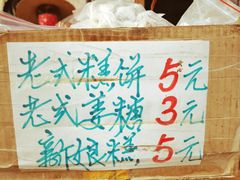 老式糕饼 5元
老式姜糖 3元
新娘糕 5元